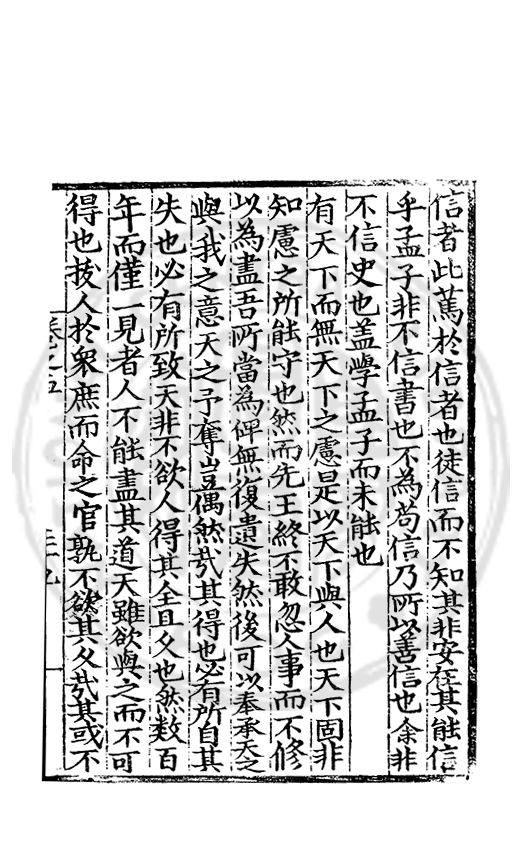 信者此篤於信者也徒信而不知其非安在其能信
乎孟子非不信書也不為苟信乃所以善信也余非
不信史也盖學孟子而未能也
有天下而無天下之慮是以天下與人也天下固非
知慮之所能守也然而先王終不敢忽人事而不修
以為盡吾所當為俾無復遺失然後可以奉承天之
與我之意天之予奪豈偶然㢤其得也必有所自其
失也必有所致天非不欲人得其全且久也然数百
年而僅一見者人不能盡其道天雖欲與之而不可
得也拔人於衆庶而命之官孰不欲其久㢤其或不
卷之五
三十九